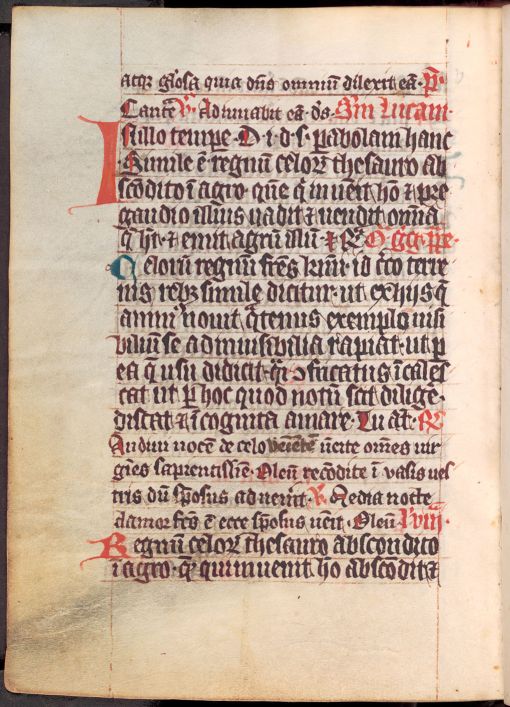 atqꝫ gl'osa quia dn̄s omniū dilexit eā · P̄.
Cant̄e ℣ Adiuuabit eā d̄s · Sm̄ lucam ·
Istillo tempe · D · i · d · s · pabolam hanc
Simile ē regnū celoꝝ thesauro ab
scondito ī agro · que q̄ inuēit hō ⁊ pre
gaudio illius uadit ⁊ uendit omnia
q̄ h̄t · ⁊ emit agrū illū
Celorū regnum fr̄es kmi · id c̄co terre
nis rebꝫ simile dicitur · ut ex hijs q̄
anim' nouit
exemplo inui
sibilia rapiat · ut p
ea q̄ usu didicit
ī cales
cat ut p hoc quod notū scit dilige
discat ⁊ īcognita amare · Tu āt ·
Audiui uocē de celo ueniētē uēite om̄es uir
gīes sapientissīe · Oleū recōdite ī uasis ues
tris dū sponsus aduenit · ℣ Media nocte
clamor fc̄s ē ecce sponsus uēit · Oleū
Regnū celoꝝ thesauro abscondito
ī agro · quē qui inuenit hō abscodit ⁊